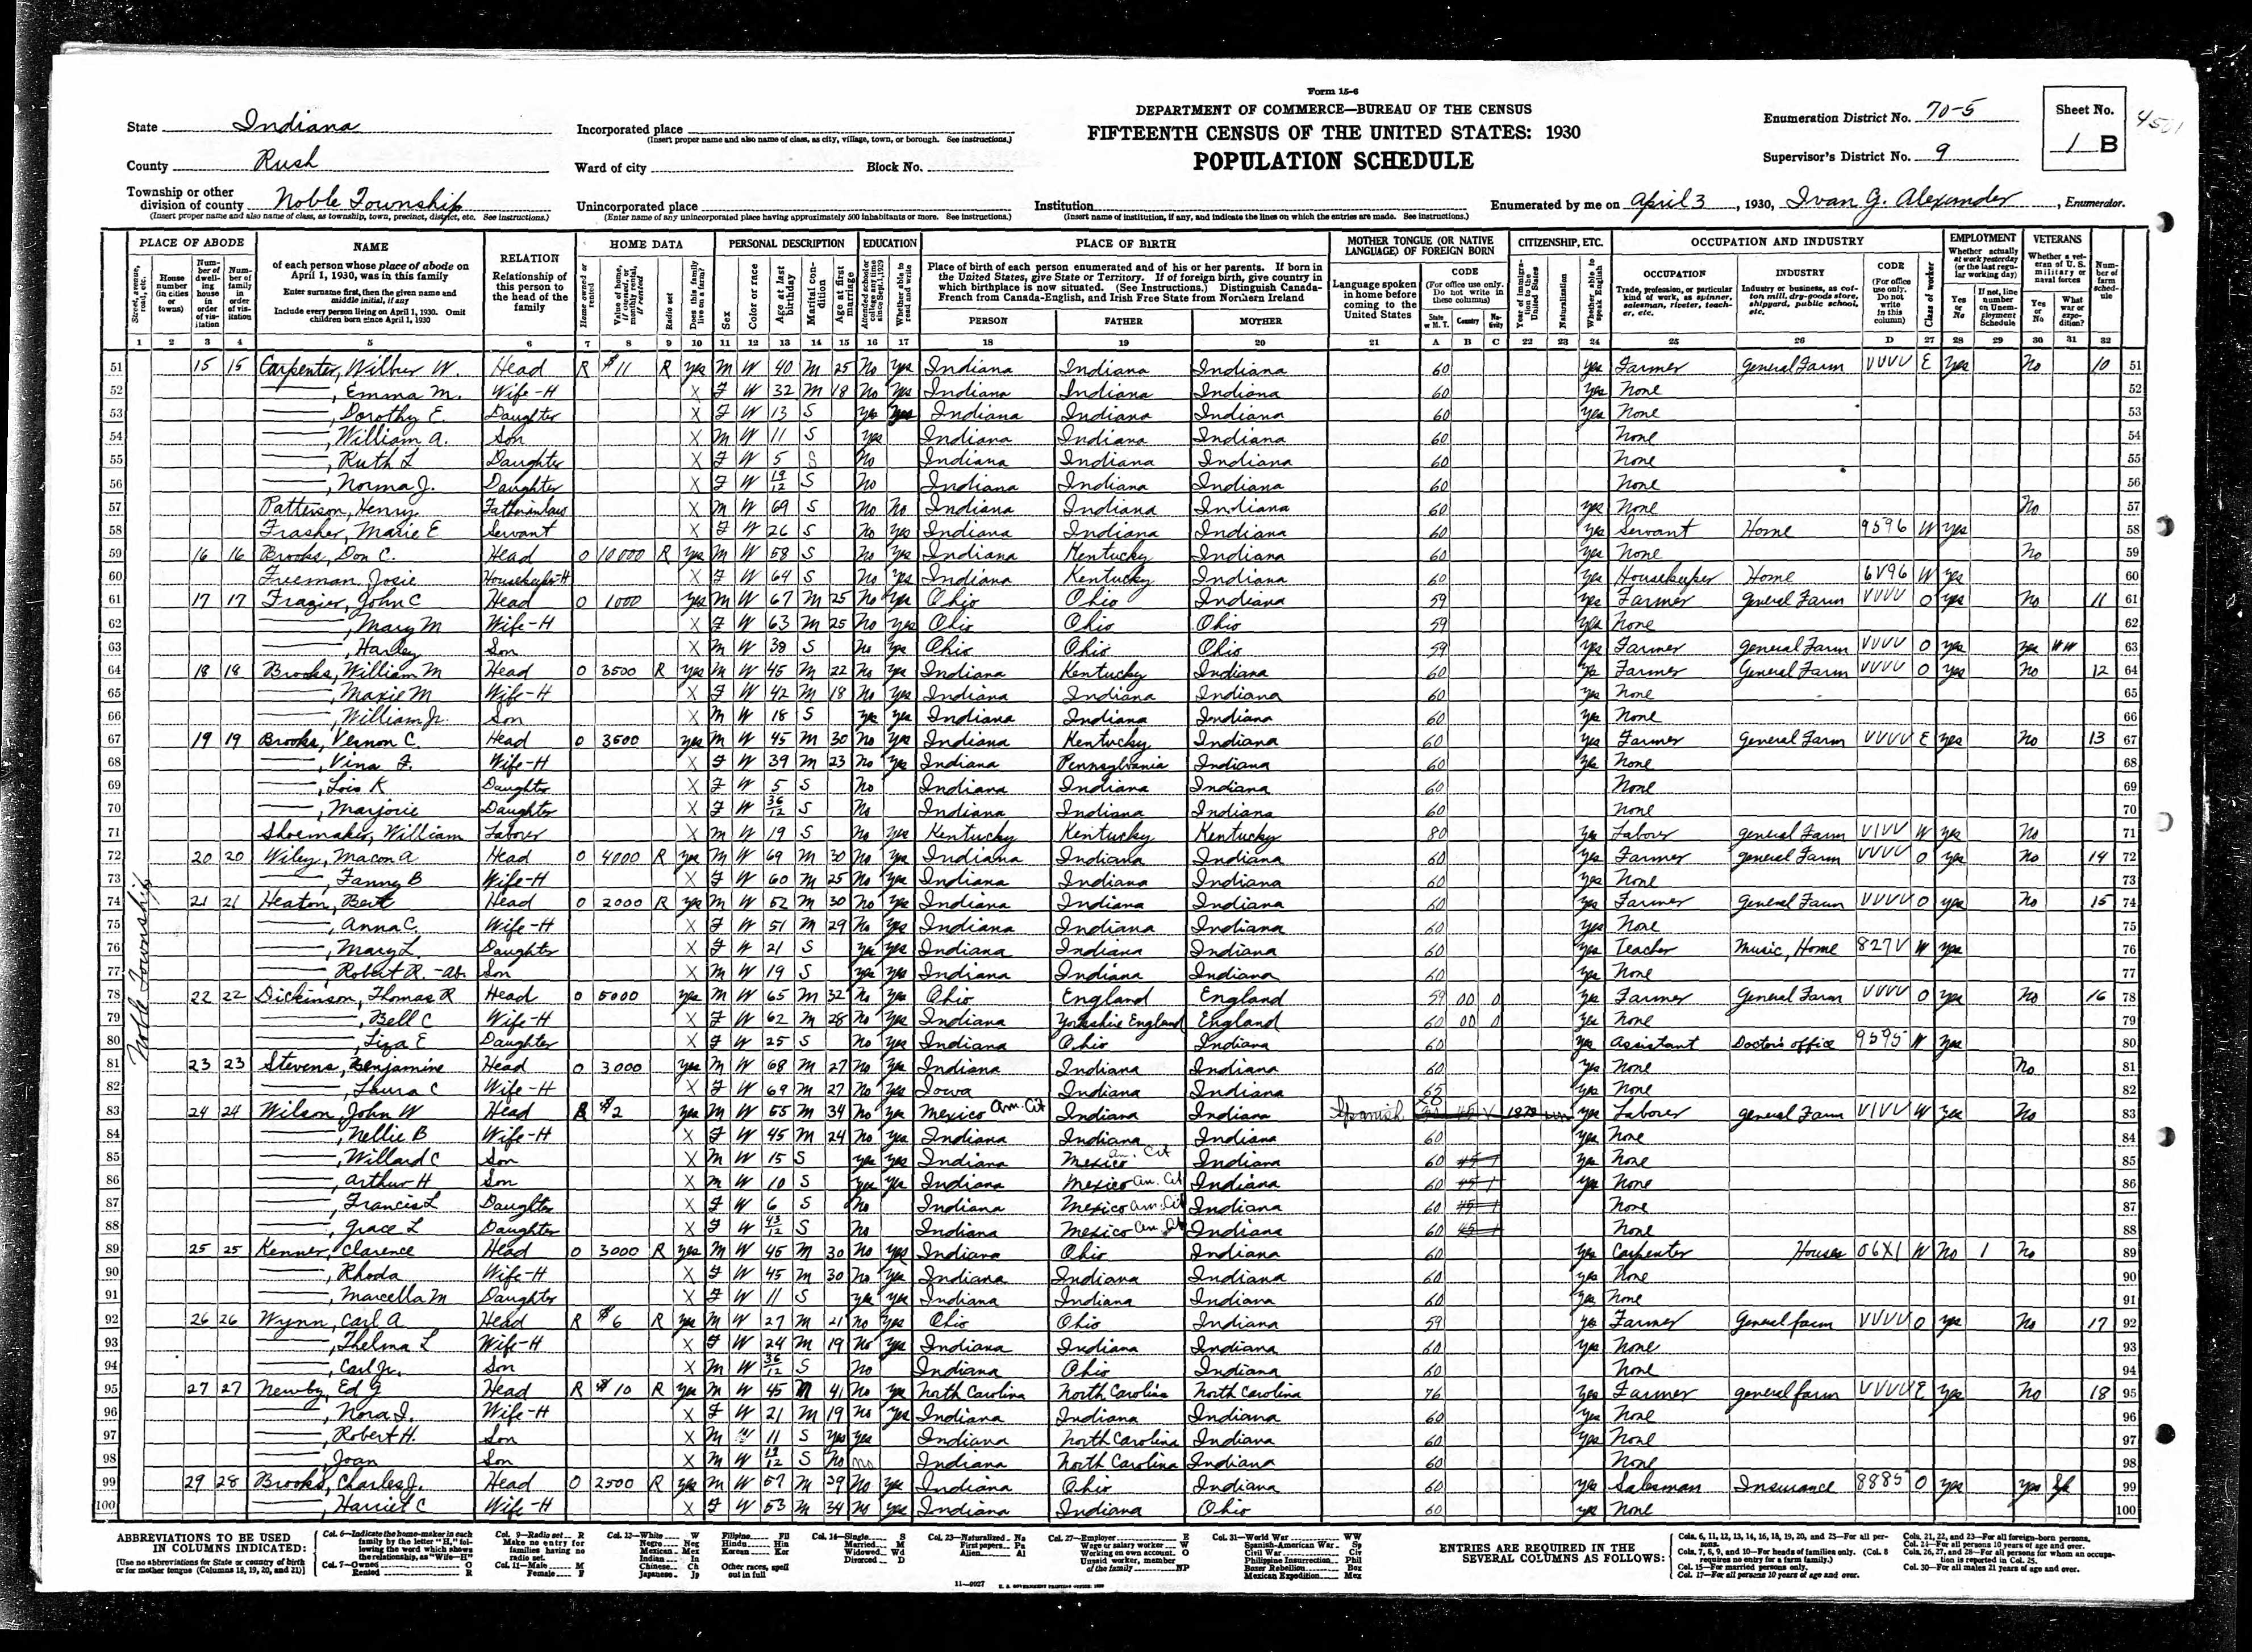 Form 15-6
DEPARTMENT OF COMMERCE—BUREAU OF THE CENSUS
FIFTEENTH CENSUS OF THE UNITED STATES: 1930
POPULATION SCHEDULE
State Indiana
County Rush
Township or other division of county Noble Township
(Insert proper name and also name of class, as township, town, precinct, district, etc. See instructions.)
Incorporated place
(Insert proper name and also name of class, as city, village, town, or borough. See instructions.)
Ward of city Block No.
Unincorporated place
(Enter name of any unincorporated place having approximately 500 inhabitants or more. See instructions.)
Institution
(Insert name of institution, if any, and indicate the lines on which the entries are made. See instructions.)
Enumeration District No. 70-5
Supervisor's District No. 9
Sheet No.
1 B
Enumerated by me on April 3, 1930, Ivan G. Alexander, Enumerator.
PLACE OF ABODE NAME RELATION HOME DATA PERSONAL DESCRIPTION EDUCATION PLACE OF BIRTH MOTHER TONGUE (OR NATIVE LANGUAGE) OF FOREIGN BORN CITIZENSHIP, ETC. OCCUPATION AND INDUSTRY EMPLOYMENT VETERANS
of each person whose place of abode on April 1, 1930, was in this family
Enter surname first, then the given name and middle initial, if any
Include every person living on April 1, 1930. Omit children born since April 1, 1930
Relationship of this person to the head of the family
Place of birth of each person enumerated and of his or her parents. If born in the United States, give State or Territory. If of foreign birth, give country in which birthplace is now situated. (See Instructions.) Distinguish Canada-French from Canada-English, and Irish Free State from Northern Ireland
PERSON FATHER MOTHER
Language spoken in home before coming to the United States
CODE (For office use only. Do not write in these columns)
OCCUPATION Trade, profession, or particular kind of work, as spinner, salesman, riveter, teacher, etc.
INDUSTRY Industry or business, as cotton mill, dry-goods store, shipyard, public school, etc.
CODE (For office use only. Do not write in this column)
Noble Township
51 15 15 Carpenter, Wilbur W. Head R $11 R yes M W 40 M 25 No yes Indiana Indiana Indiana 60 yes Farmer General Farm VVVV E yes No 10 51
52 , Emma M. Wife-H X F W 32 M 18 No yes Indiana Indiana Indiana 60 yes None 52
53 , Dorothy E. Daughter X F W 13 S yes yes Indiana Indiana Indiana 60 yes None 53
54 , William A. Son X M W 11 S yes Indiana Indiana Indiana 60 None 54
55 , Ruth L Daughter X F W 5 S No Indiana Indiana Indiana 60 None 55
56 , Norma J. Daughter X F W 19/12 S No Indiana Indiana Indiana 60 None 56
57 Patterson, Henry Fatherinlaw X M W 69 S No No Indiana Indiana Indiana 60 yes None No 57
58 Frasher, Marie E Servant X F W 26 S No yes Indiana Indiana Indiana 60 yes Servant Home 9596 W yes 58
59 16 16 Brooks, Don C. Head O 10000 R yes M W 58 S No yes Indiana Kentucky Indiana 60 yes None No 59
60 Freeman Josie Housekeeper-H X F W 64 S No yes Indiana Kentucky Indiana 60 yes Housekeeper Home 6V96 W yes 60
61 17 17 Frazier, John C Head O 1000 yes M W 67 M 25 No yes Ohio Ohio Indiana 59 yes Farmer General Farm VVVV O yes No 11 61
62 , Mary M Wife-H X F W 63 M 25 No yes Ohio Ohio Ohio 59 yes None 62
63 , Harley Son X M W 38 S No yes Ohio Ohio Ohio 59 yes Farmer General Farm VVVV O yes yes WW 63
64 18 18 Brooks, William M Head O 3500 R yes M W 45 M 22 No yes Indiana Kentucky Indiana 60 yes Farmer General Farm VVVV O yes No 12 64
65 , Maxie M Wife-H X F W 42 M 18 No yes Indiana Indiana Indiana 60 yes None 65
66 , William Jr. Son X M W 18 S yes yes Indiana Indiana Indiana 60 yes None 66
67 19 19 Brooks, Vernon C. Head O 3500 yes M W 45 M 30 No yes Indiana Kentucky Indiana 60 yes Farmer General Farm VVVV E yes No 13 67
68 , Vina F. Wife-H X F W 39 M 23 No yes Indiana Pennsylvania Indiana 60 yes None 68
69 , Lois K Daughter X F W 5 S No Indiana Indiana Indiana 60 None 69
70 , Marjorie Daughter X F W 36/12 S No Indiana Indiana Indiana 60 None 70
71 Shoemaker, William Laborer X M W 19 S No yes Kentucky Kentucky Kentucky 80 yes Laborer General Farm V1VV W yes No 71
72 20 20 Wiley, Macon A Head O 4000 R yes M W 69 M 30 No yes Indiana Indiana Indiana 60 yes Farmer General Farm VVVV O yes No 14 72
73 , Fanny B Wife-H X F W 60 M 25 No yes Indiana Indiana Indiana 60 yes None 73
74 21 21 Heaton, Bert Head O 2000 R yes M W 52 M 30 No yes Indiana Indiana Indiana 60 yes Farmer General Farm VVVV O yes No 15 74
75 , Anna C. Wife-H X F W 51 M 29 No yes Indiana Indiana Indiana 60 yes None 75
76 , Mary L. Daughter X F W 21 S yes yes Indiana Indiana Indiana 60 yes Teacher Music, Home 827V W yes 76
77 , Robert R. -ab. Son X M W 19 S yes yes Indiana Indiana Indiana 60 yes None 77
78 22 22 Dickinson, Thomas R Head O 5000 yes M W 65 M 32 No yes Ohio England England 59 00 0 yes Farmer General Farm VVVV O yes No 16 78
79 , Bell C Wife-H X F W 62 M 28 No yes Indiana Yorkshire England England 60 00 0 yes None 79
80 , Liza E Daughter X F W 25 S No yes Indiana Ohio Indiana 60 yes Assistant Doctor's office 9595 W yes 80
81 23 23 Stevens, Benjamine Head O 3000 yes M W 68 M 27 No yes Indiana Indiana Indiana 60 yes None No 81
82 , Laura C Wife-H X F W 69 M 27 No yes Iowa Indiana Indiana 65 yes None 82
83 24 24 Wilson, John W Head R $2 yes M W 55 M 34 No yes Mexico Am. Cit Indiana Indiana Spanish yes Laborer General Farm V1VV W yes No 83
84 , Nellie B Wife-H X F W 45 M 24 No yes Indiana Indiana Indiana 60 yes None 84
85 , Willard C Son X M W 15 S yes yes Indiana Mexico Am. Cit Indiana 60 yes None 85
86 , Arthur H Son X M W 10 S yes yes Indiana Mexico Am. Cit Indiana 60 yes None 86
87 , Francis L Daughter X F W 6 S No Indiana Mexico Am. Cit Indiana 60 None 87
88 , Grace L Daughter X F W 43/12 S No Indiana Mexico Am. Cit Indiana 60 None 88
89 25 25 Kenner, Clarence Head O 3000 R yes M W 45 M 30 No yes Indiana Ohio Indiana 60 yes Carpenter Houses 06X1 W No 1 No 89
90 , Rhoda Wife-H X F W 45 M 30 No yes Indiana Indiana Indiana 60 yes None 90
91 , Marcella M Daughter X F W 11 S yes yes Indiana Indiana Indiana 60 yes None 91
92 26 26 Wynn, Carl A Head R $6 R yes M W 27 M 21 No yes Ohio Ohio Indiana 59 yes Farmer General farm VVVV O yes No 17 92
93 , Thelma L Wife-H X F W 24 M 19 No yes Indiana Indiana Indiana 60 yes None 93
94 , Carl Jr. Son X M W 36/12 S No Indiana Ohio Indiana 60 None 94
95 27 27 Newby, Ed G Head R $10 R yes M W 45 M 41 No yes North Carolina North Carolina North Carolina 76 yes Farmer General farm VVVV E yes No 18 95
96 , Nora I. Wife-H X F W 21 M 19 No yes Indiana Indiana Indiana 60 yes None 96
97 , Robert H. Son X M W 11 S yes yes Indiana North Carolina Indiana 60 yes None 97
98 , Joan Son X M W S No no Indiana North Carolina Indiana 60 None 98
99 29 28 Brooks, Charles J. Head O 2500 R yes M W 57 M 39 No yes Indiana Ohio Indiana 60 yes Salesman Insurance 8885 O yes yes Sp 99
100 , Harriet C Wife-H X F W 53 M 34 No yes Indiana Indiana Ohio 60 yes None 100
ABBREVIATIONS TO BE USED IN COLUMNS INDICATED:
[Use no abbreviations for State or country of birth or for mother tongue (Columns 18, 19, 20, and 21)]
ENTRIES ARE REQUIRED IN THE SEVERAL COLUMNS AS FOLLOWS: